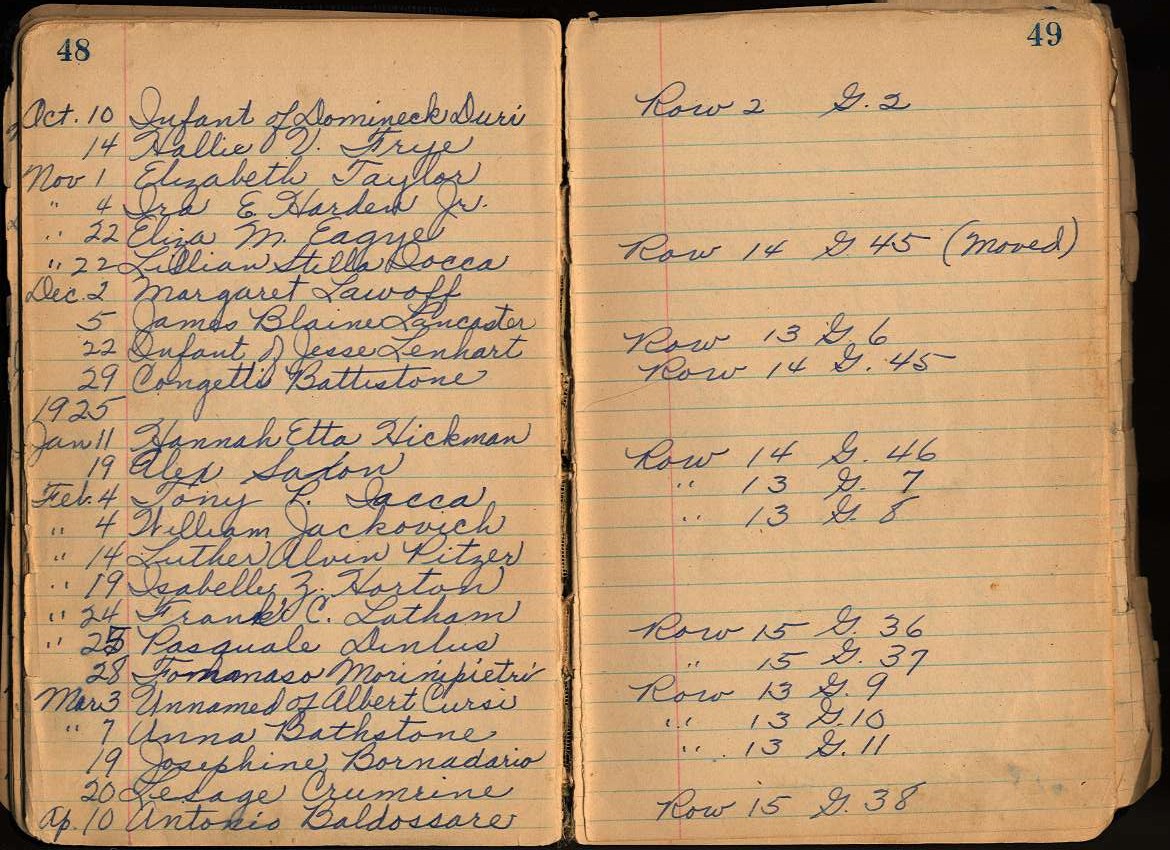 48
Oct. 10 Infant of Domineck Duri
14 Hallie V. Frye
Nov 1 Elizabeth Taylor
" 4 Ira E. Harden Jr.
" 22 Eliza M. Eagye
" 22 Lillian Stilla Docca
Dec. 2 Margaret Lawoff
5 James Blaine Lancaster
22 Infant of Jesse Lenhart
29 Congetti Battistone
1925
Jan 11 Hannah Etta Hickman
19 Alex Sadon
Feb. 4 Tony F. Iacca
" 4 William Jackovich
" 14 Luther Alvin Ritzer
" 19 Isabelle Z. Horton
" 24 Frank C. Latham
" 25 Pasquale Dintus
28 Tomanaso Morinipietri
Mar 3 Unnamed of Albert Cursi
" 7 Anna Bathstone
19 Josephine Bornadario
20 Lesage Crumrine
Ap. 10 Antonio Baldossare
49
Row 2 G. 2
Row 14 G. 45 (Moved)
Row 13 G 6
Row 14 G. 45
Row 14 G. 46
" 13 G. 7
" 13 G. 8
Row 15 G. 36
" 15 G. 37
Row 13 G. 9
" 13 G. 10
" 13 G. 11
Row 15 G. 38